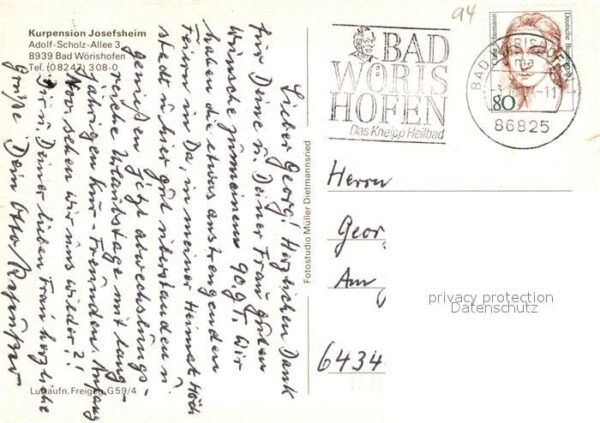 Kurpension Josefsheim
Adolf-Scholz-Allee 3
8939 Bad Wörishofen
Tel. (08247) 308-0
Lieber Georg! Herzlichen Dank
für Deine u. Deiner Frau guten
Wünsche zu meinem 90. g. Wir
haben die etwas anstrengenden
Feiern in Da, in meiner Heimat Höch
stadt u. hier gut überstanden u.
genießen jetzt abwechslungs-
reiche Urlaubstage mit lang-
jährigen Kur-Freunden. Anfang
Nov. sehen wir uns wieder?!
Dir u. Deiner lieben Frau herzliche
Grüße Dein Otto
Luftaufn. Freigeg. G 59/4
Fotostudio Müller Dietmannsried
94
BAD
WÖRIS
HOFEN
Das Kneipp Heilbad
BAD WÖRISHOFEN 1
ma
-11
86825
Deutsche Bundespost
80
Herrn
Geor
Am
6434
privacy protection
Datenschutz